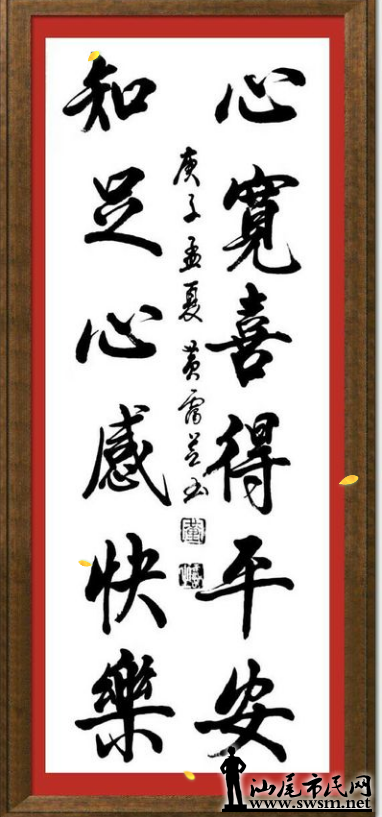 心寬喜得平安
知足心感快樂
庚子孟夏 黄书
汕尾市民网
www.swsm.net